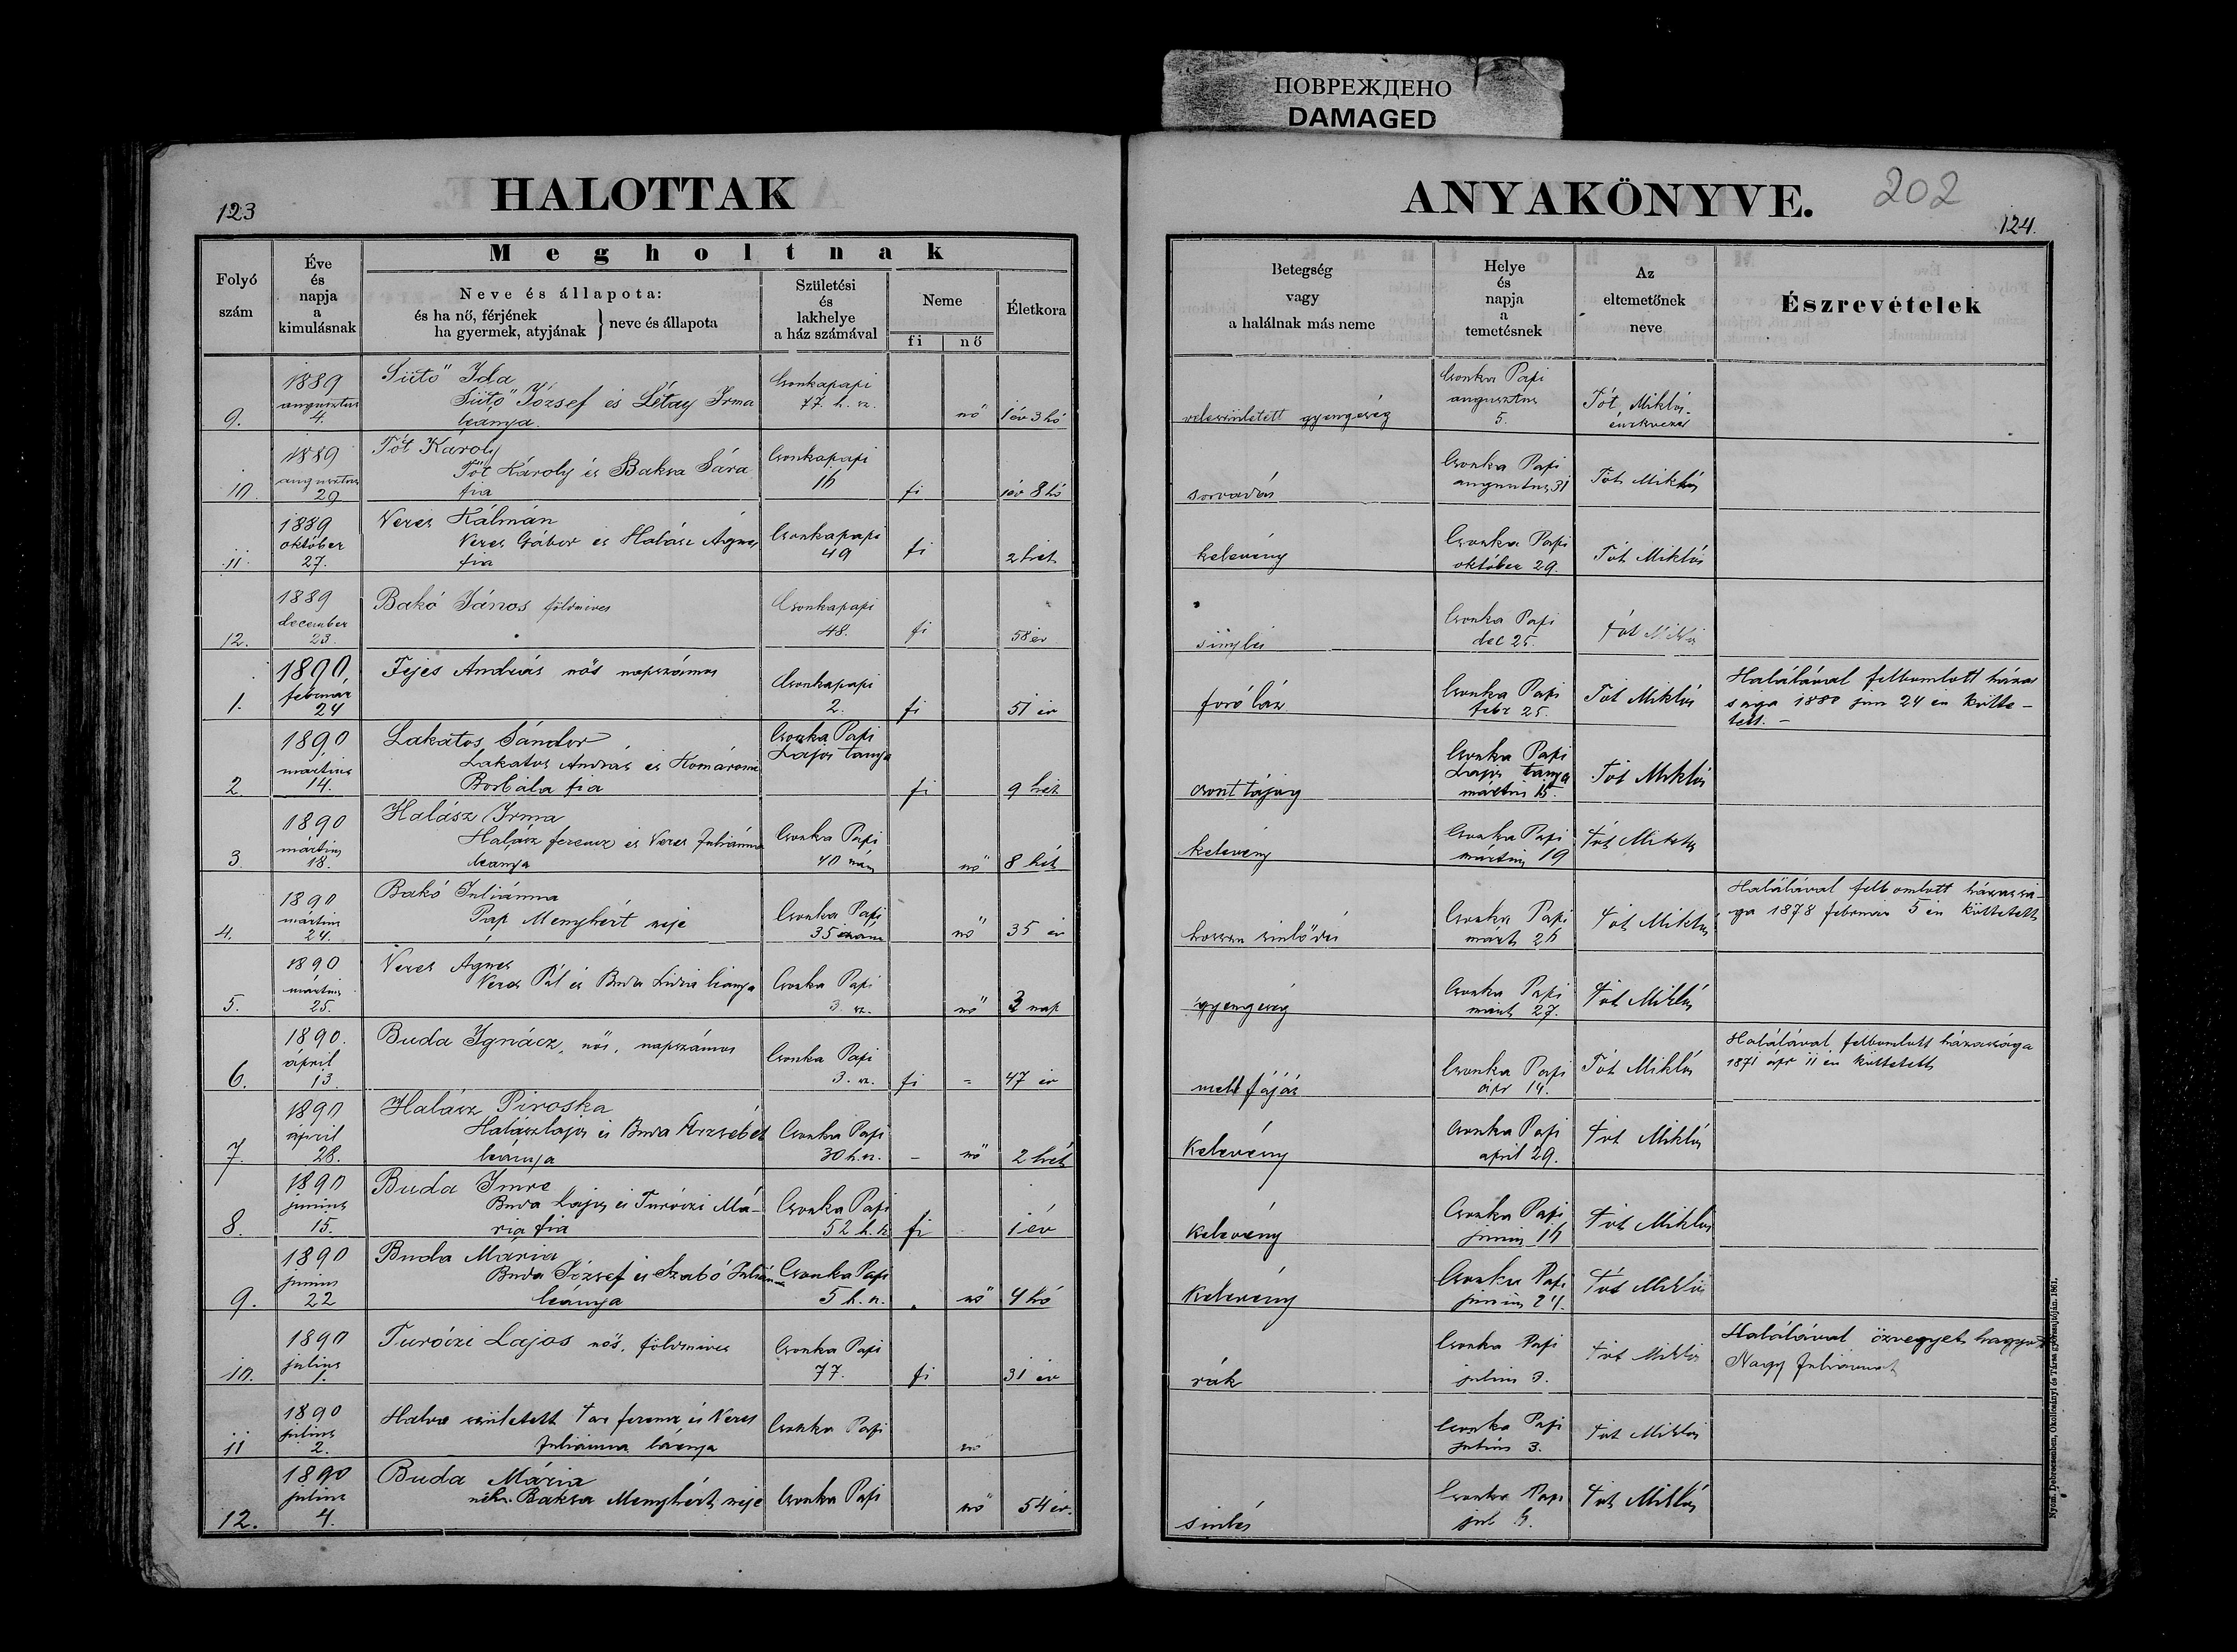 ПОВРЕЖДЕНО
DAMAGED
123
HALOTTAK
Folyó
szám
Éve
és
napja
a
kimulásnak
Megholtnak
Neve és állapota:
és ha nő, férjének
ha gyermek, atyjának } neve és állapota
Születési
és
lakhelye
a ház számával
Neme
fi nő
Életkora
9. 1889 augusztus 4. Sütő Ida Csonkapapi 77. h. sz. nő 1 év 3 hó
Sütő József és Létay Irma
leánya.
10. 1889 augusztus 29 Tót Károly Csonkapapi 16 fi 1 év 8 hó
Tót Károly és Baksa Sára
fia
11. 1889 október 27. Veres Kálmán Csonkapapi 49 fi 2 hét
Veres Gábor és Halász Ágnes
fia
12. 1889 december 23. Bakó János földmives Csonkapapi 48. fi 58 év
1. 1890, február 24 Fejes András nős napszámos Csonkapapi 2. fi 51 év
2 1890 martius 14. Lakatos Sándor Csonka Papi Lajos tanya fi 9 hét
Lakatos András és Komáromi
Borbála fia
3 1890 mártius 18. Halász Irma Csonka Papi 40 szám nő 8 hét
Halász ferencz és Veres Juliánna
leanya
4. 1890 mártius 24. Bakó Juliánna Csonka Papi 35 szám nő 35 év
Pap Menyhért neje
5. 1890 mártius 25. Veres Ágnes Csonka Papi 3. sz. nő 3 nap
Veres Pál és Buda Lidia leánya
6. 1890. ápril 13. Buda Ignácz, nős, napszámos Csonka Papi 3. sz. fi = 47 év
7. 1890 ápril 28. Halász Piroska Csonka Papi 30 h. sz. - nő 2 hét
Halász Lajos és Buda Erzsébet
leánya
8. 1890 junius 15. Buda Imre Csonka Papi 52 h. sz fi 1 év
Buda Lajos és Turóczi Má-
ria fia
9. 1890 junius 22 Buda Mária Csonka Papi 5 h. sz. nő 4 hó
Buda József és Szabó Juliánna
leánya
10. 1890 julius 1. Turóczi Lajos nős, földmives Csonka Papi 77. fi 31 év
11 1890 julius 2. Halva született Tar ferencz és Veres Csonka Papi nő
Juliánna leánya
12. 1890 julius 4. Buda Mária Csonka Papi nő 54 év.
néh. Baksa Menyhért neje
ANYAKÖNYVE.
202
124.
Betegség
vagy
a halálnak más neme
Helye
és
napja
a
temetésnek
Az
eltemetőnek
neve
Észrevételek
veleszületett gyengeség Csonka Papi augusztus 5. Tót Miklós
sorvadás Csonka Papi augusztus 31 Tót Miklós
kelevény Csonka Papi október 29. Tót Miklós
Csonka Papi dec 25. Tót Miklós
forró láz Csonka Papi febr 25. Tót Miklós Halálával felbomlott házas
sága 1880 jun 24 én kötte-
tett. -
Csonka Papi Lajos tanya mártius 15. Tót Miklós
kelevény Csonka Papi mártius 19 Tót Miklós
Csonka Papi márt 26 Tót Miklós Halálával felbomlott házassá-
ga 1878 februar 5 én köttetett
gyengeség Csonka Papi márt 27. Tót Miklós
mell fájás Csonka Papi ápr 14. Tót Miklós Halálával felbomlott házassága
1871 ápr 11 én köttetett
Kelevény Csonka Papi april 29. Tót Miklós
Kelevény Csonka Papi junius 16 Tót Miklós
Kelevény Csonka Papi junius 24. Tót Miklós
rák Csonka Papi julius 3. Tót Miklós Halálával özvegyet hagyott
Nagy Juliannát
Csonka Papi julius 3. Tót Miklós
Csonka Papi jul Tót Miklós
Nyom. Debreczenben, Okolicsányi és Társa gyorssajtóján. 1861.